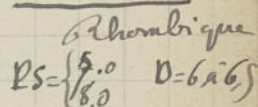 Rhombique
PS={5.0 D=6,à6,5
8.0